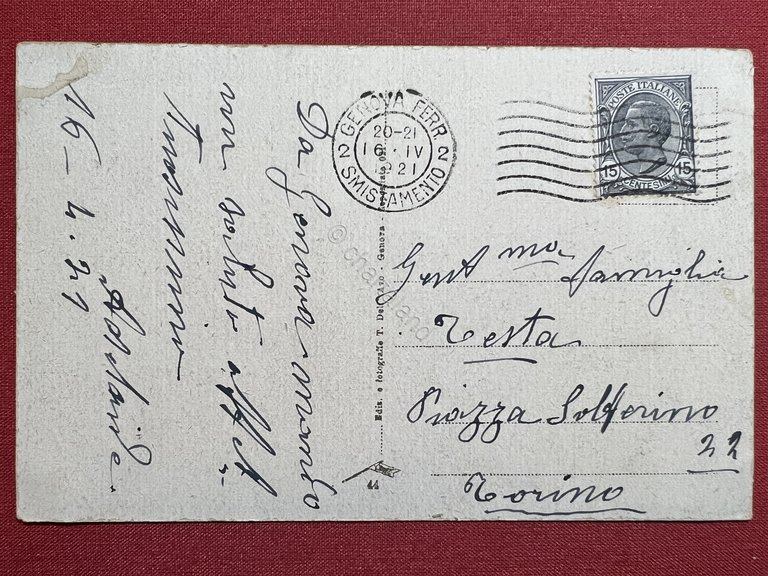 Da Genova mando
un saluto affet-
tuosissimo
Adelaide.
16-4.21
GENOVA FERR.
20-21
16·IV
1921
2 2
SMISTAMENTO
POSTE ITALIANE
15 15
CENTESIMI
Gent.ma famiglia
Testa
Piazza Solferino
22
Torino
Ediz. e fotografie T. Dell'Avo - Genova -
44